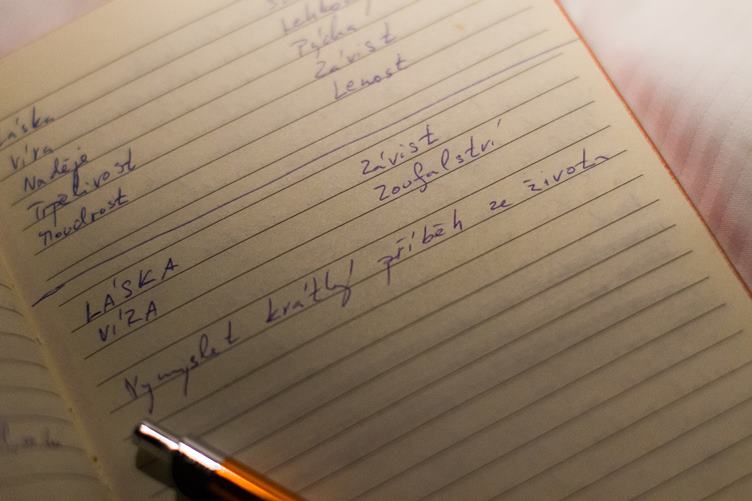 Lehkos
Pýcha
Závist
Lenost
Láska
Víra
Naděje
Trpělivost
Moudrost
Závist
Zoufalství
LÁSKA
VÍRA
Vymyslet krátký příběh ze života